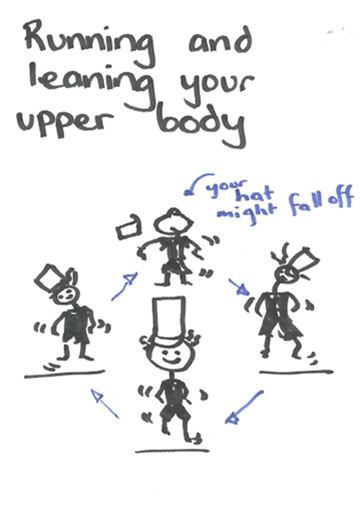 Running and
leaning your
upper body
your
hat
might fall off